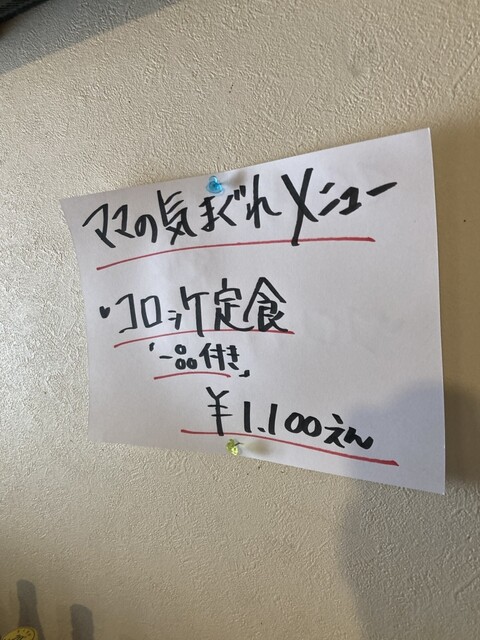 ママの気まぐれメニュー
・コロッケ定食
「一品付き」
¥1.100えん